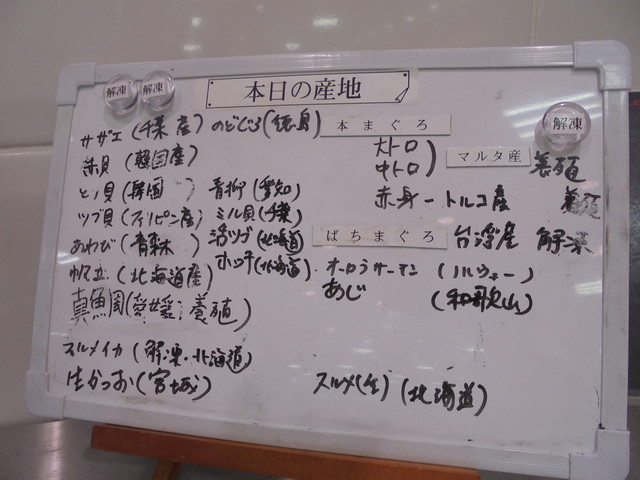 解凍 解凍
本日の産地
解凍
サザエ(千葉産)
のどぐろ(徳島)
本まぐろ
赤貝(韓国産)
大トロ
中トロ
マルタ産 養殖
ヒノ貝(韓国)
青柳(愛知)
赤身ートルコ産 養殖
ツブ貝(フィリピン産)
ミル貝(千葉)
あわび(青森)
活ツブ(北海道)
ばちまぐろ 台湾産 解凍
帆立(北海道産)
ホッキ(北海道)
オーロラサーモン(ノルウェー)
真鯛(愛媛 養殖)
あじ(和歌山)
スルメイカ(解凍・北海道)
生かつお(宮城)
スルメ(生)(北海道)